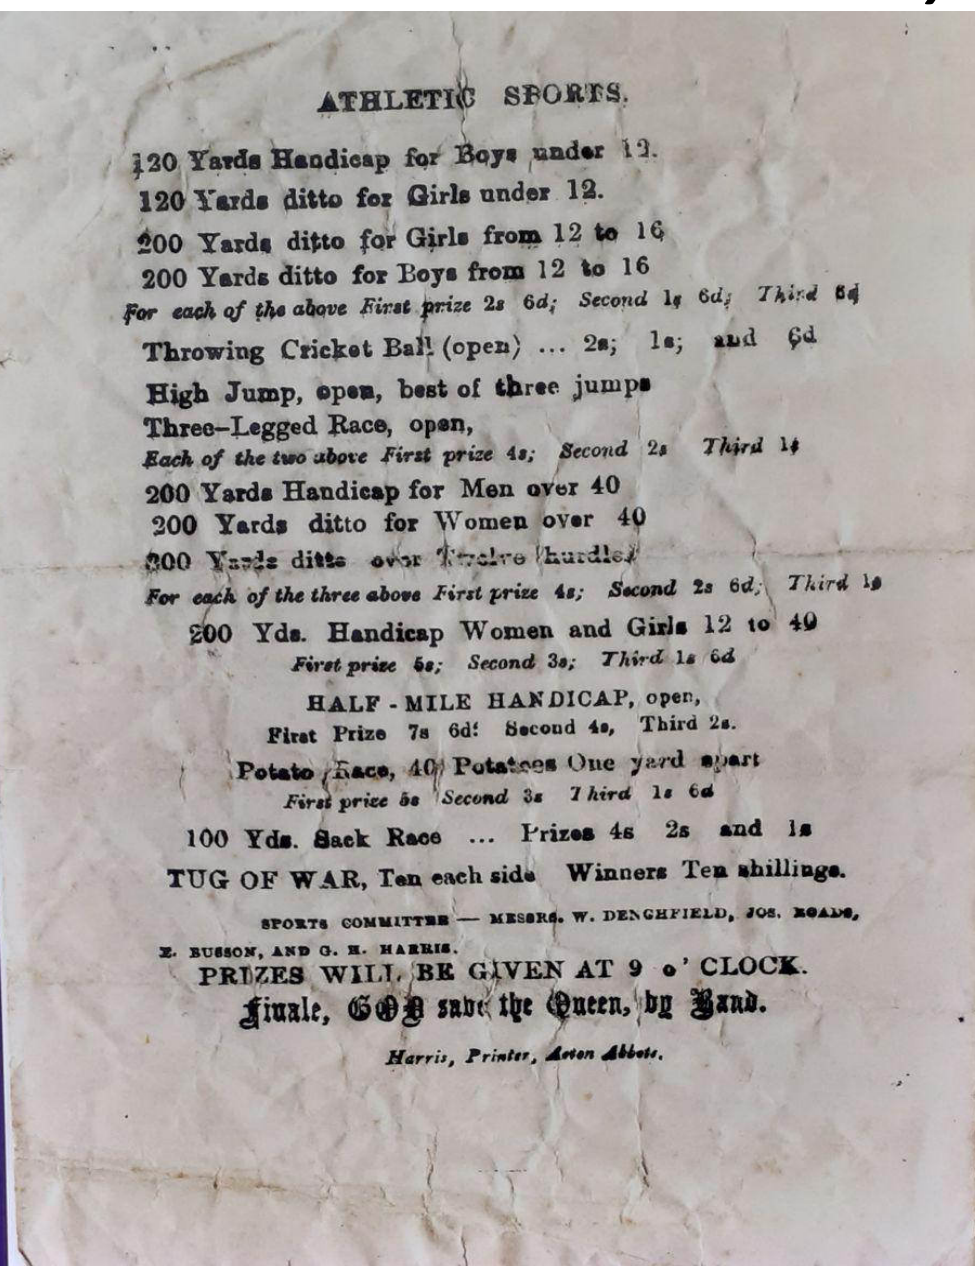 ATHLETIC SPORTS.
120 Yards Handicap for Boys under 12.
120 Yards ditto for Girls under 12.
200 Yards ditto for Girls from 12 to 16
200 Yards ditto for Boys from 12 to 16
For each of the above First prize 2s 6d; Second 1s 6d; Third 6d
Throwing Cricket Ball (open) ... 2s; 1s; and 6d
High Jump, open, best of three jumps
Three-Legged Race, open,
Each of the two above First prize 4s; Second 2s Third 1s
200 Yards Handicap for Men over 40
200 Yards ditto for Women over 40
300 Yards ditto over Twelve hurdles
For each of the three above First prize 4s; Second 2s 6d; Third 1s
200 Yds. Handicap Women and Girls 12 to 40
First prize 5s; Second 3s; Third 1s 6d
HALF-MILE HANDICAP, open,
First Prize 7s 6d: Second 4s, Third 2s.
Potato Race, 40 Potatoes One yard apart
First prize 5s Second 3s Third 1s 6d
100 Yds. Sack Race ... Prizes 4s 2s and 1s
TUG OF WAR, Ten each side Winners Ten shillings.
SPORTS COMMITTEE — MESSRS. W. DENCHFIELD, JOS. ROADS,
E. BUSSON, AND G. H. HARRIS.
PRIZES WILL BE GIVEN AT 9 o' CLOCK.
Finale, GOD save the Queen, by Band.
Harris, Printer, Aston Abbots.